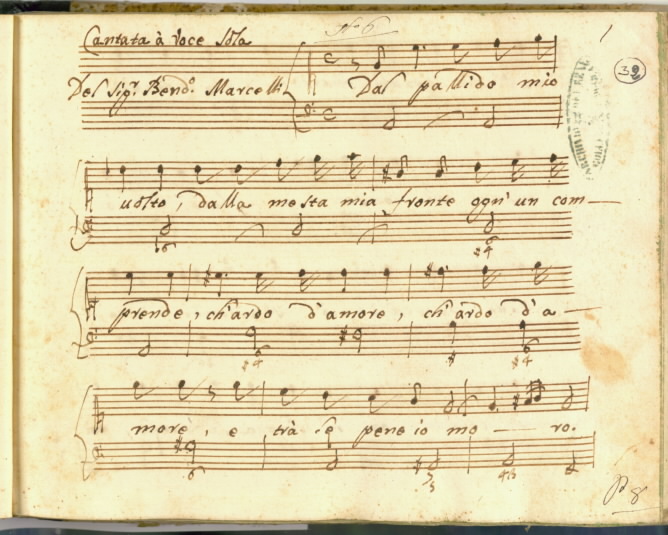 Cantata à Voce Sola
1
39
Del Sigr. Bendo. Marcelli
Dal pallido mio
uolto, dalla mesta mia fronte ogn' un com-
prende, ch'ardo d'amore, ch'ardo d'a-
more, e trà le pene io mo-ro.